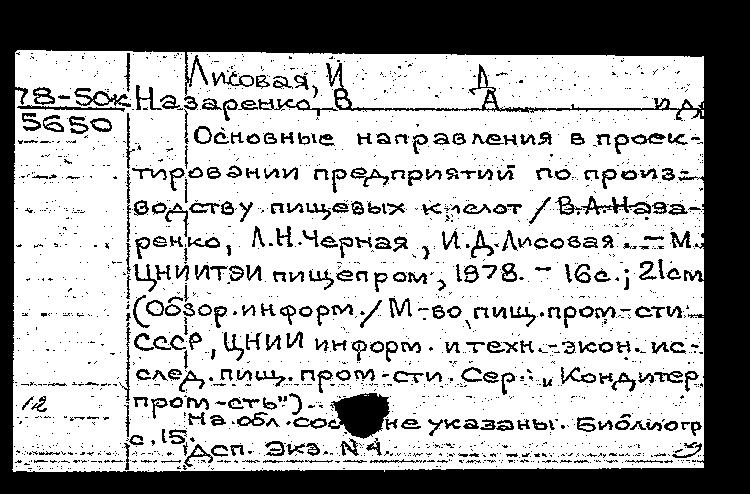 Лисовая, И Д
78-50к Назаренко, В А и др
5650
Основные направления в проек-
тировании предприятий по произ-
водству пищевых кислот / В.А.Наза-
ренко, Л.Н.Черная, И.Д.Лисовая. — М.:
ЦНИИТЭИ пищепром, 1978. - 16с.; 21см
(Обзор.информ./ М-во пищ.пром-сти
СССР, ЦНИИ информ. и техн.-экон. ис-
след. пищ. пром-сти. Сер.: „Кондитер
12 пром-сть").
На обл. сос не указаны. Библиогр
с. 15.
Дсп. Экз. N 4.